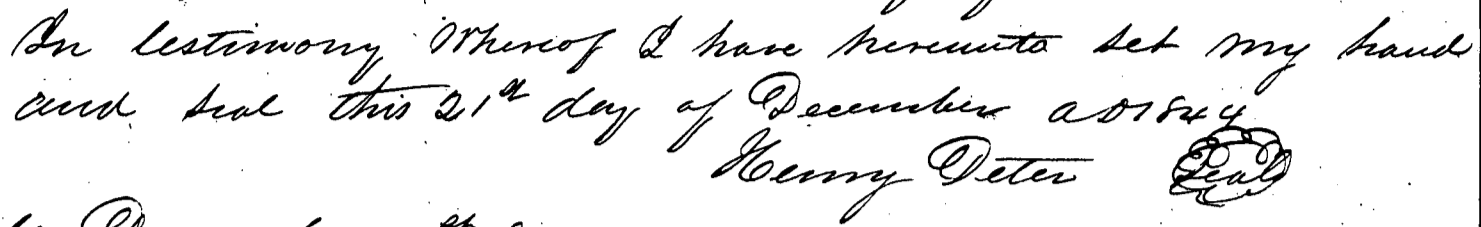 In testimony Whereof I have hereunto set my hand
and seal this 21st day of December AD 1844
Henry Deter Seal